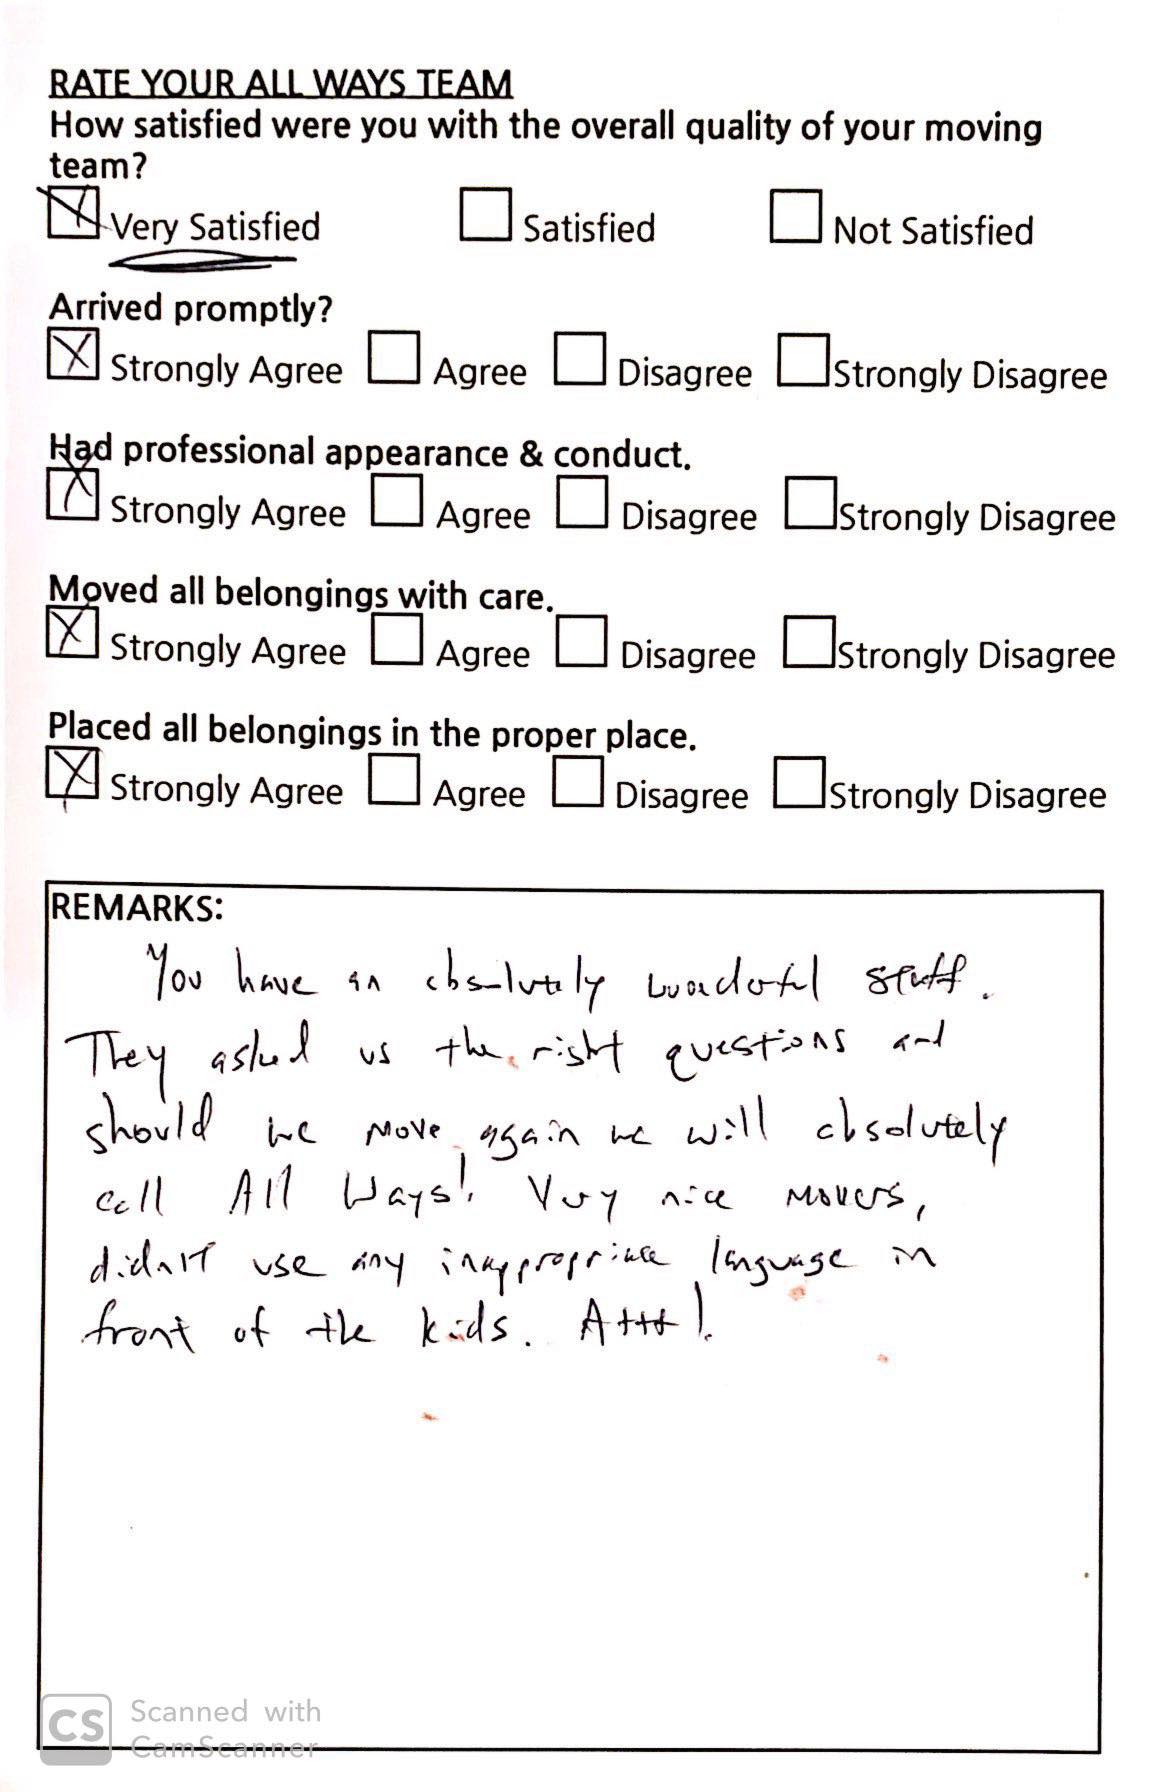 RATE YOUR ALL WAYS TEAM
How satisfied were you with the overall quality of your moving
team?
Very Satisfied Satisfied Not Satisfied
Arrived promptly?
Strongly Agree Agree Disagree Strongly Disagree
Had professional appearance & conduct.
Strongly Agree Agree Disagree Strongly Disagree
Moved all belongings with care.
Strongly Agree Agree Disagree Strongly Disagree
Placed all belongings in the proper place.
Strongly Agree Agree Disagree Strongly Disagree
REMARKS:
You have an absolutely wonderful staff.
They asked us the right questions and
should we move again we will absolutely
call All Ways! Very nice movers,
didn't use any inappropriate language in
front of the kids. A+++!
CS Scanned with
CamScanner